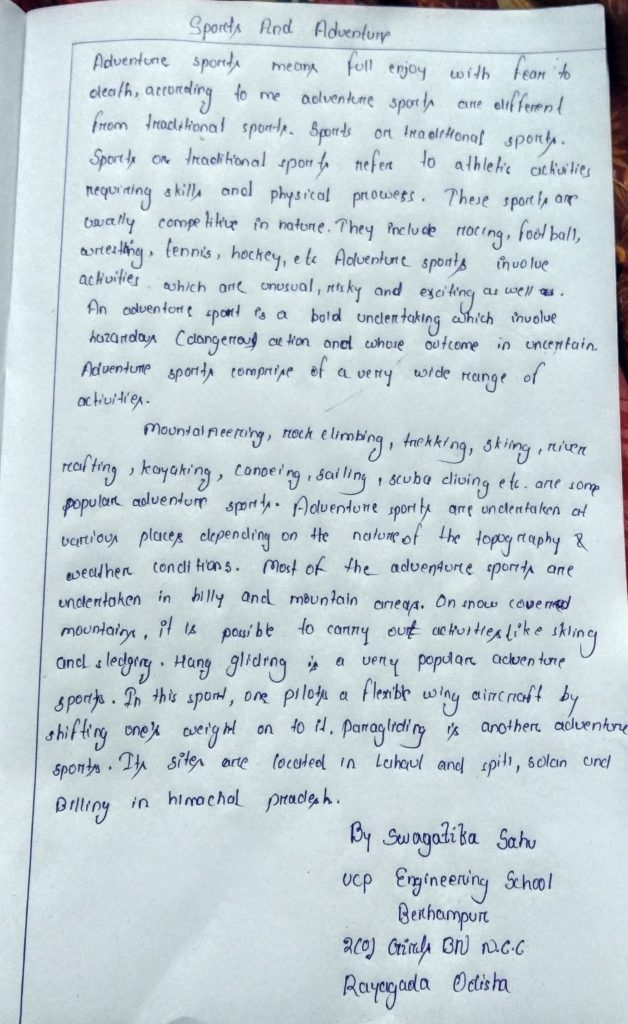 Sports And Adventure
Adventure sports means full enjoy with fear to
death, according to me adventure sports are different
from traditional sports. Sports or traditional sports.
Sports or traditional sports refer to athletic activities
requiring skills and physical prowess. These sports are
usually competitive in nature. They include racing, football,
wrestling, tennis, hockey, etc Adventure sports involve
activities which are unusual, risky and exciting as well as.
An adventore sport is a bold undertaking which involve
hazardous (dangerous) action and whose outcome in uncertain.
Adventure sports comprise of a very wide range of
activities.
Mountaineering, rock climbing, trekking, skiing, river
rafting, kayaking, canoeing, sailing, scuba diving etc. are some
popular adventure sports. Adventure sports are undertaken at
various places depending on the nature of the topography &
weather conditions. Most of the adventure sports are
undertaken in hilly and mountain areas. On snow covered
mountains, it is possible to carry out activities like skiing
and sledging. Hang gliding is a very popular adventure
sports. In this sport, one pilots a flexible wing aircraft by
shifting one's weight on to it. Paragliding is another adventure
sports. Its sites are located in Lahaul and spiti, solan and
Billing in himachal pradesh.
By Swagatika Sahu
UCP Engineering School
Berhampur
2(O) Girls BN N.C.C
Rayagada Odisha